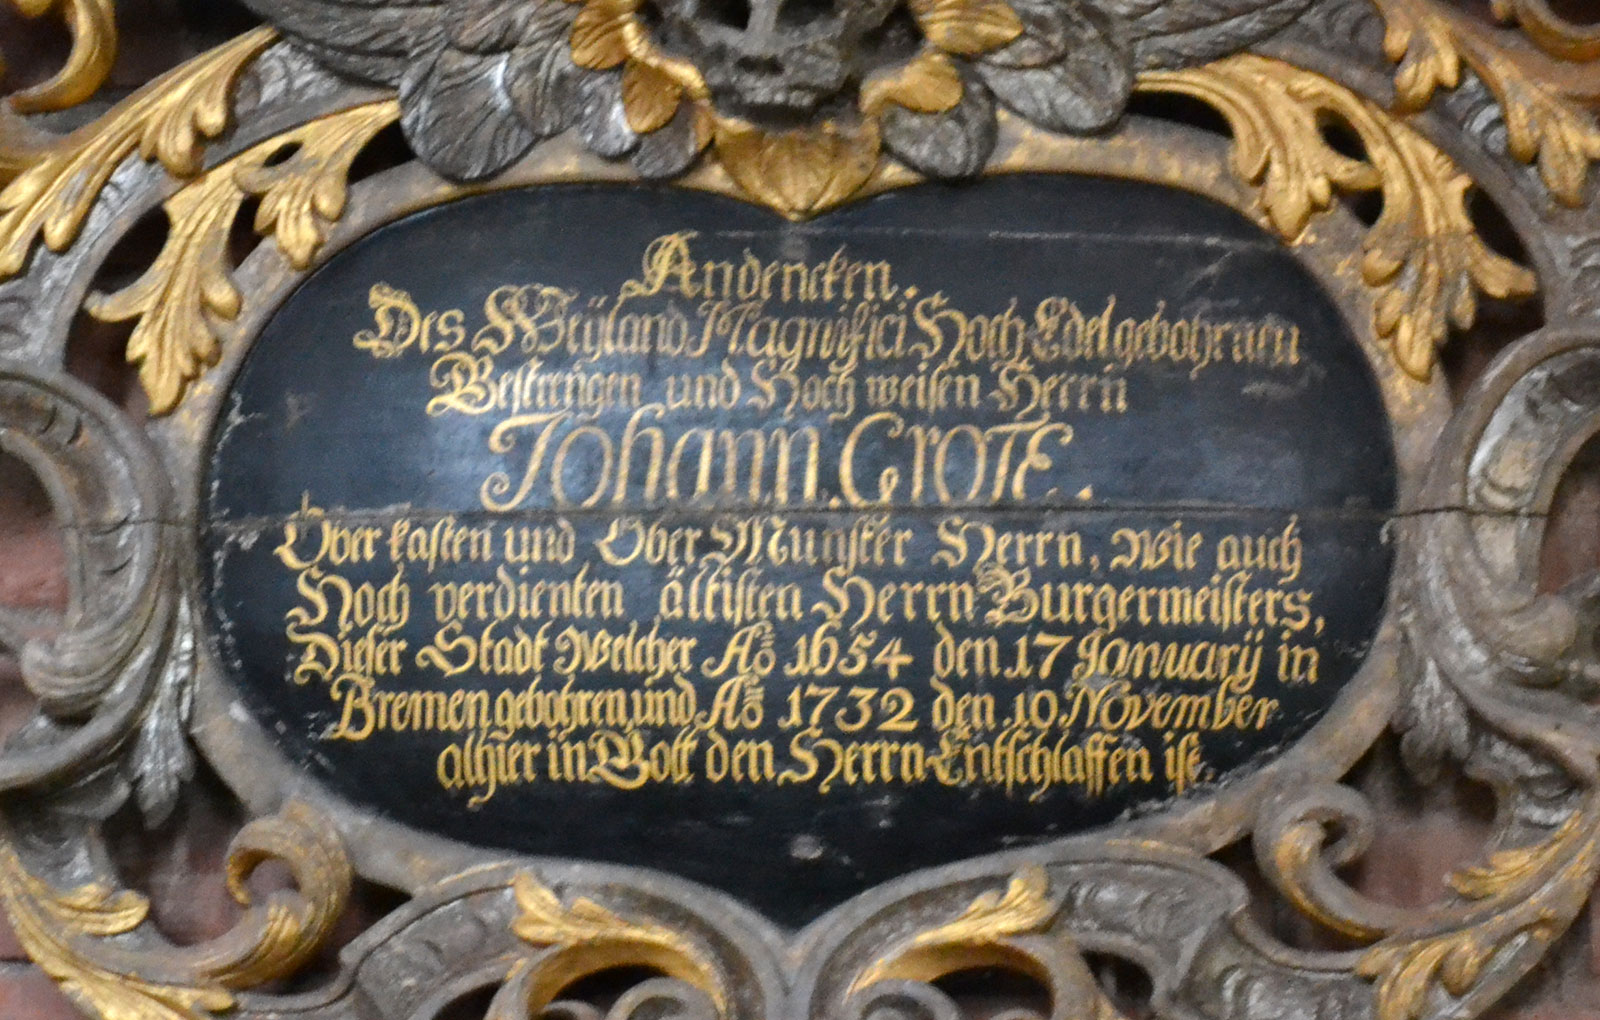 Andencken.
Des Weÿland Magnifici Hoch Edelgebohrnen
Bestrengen und Hoch weisen Herrn
Johann. Grote.
Ober kasten und Ober Munster Herrn, wie auch
Hoch verdienten ältisten Herrn Burgermeisters,
Dieser Stadt welcher Ao 1654 den 17 Januarÿ in
Bremen gebohren, und Ao 1732 den 10 November
alhier in Gott den Herrn Entschlaffen ist.